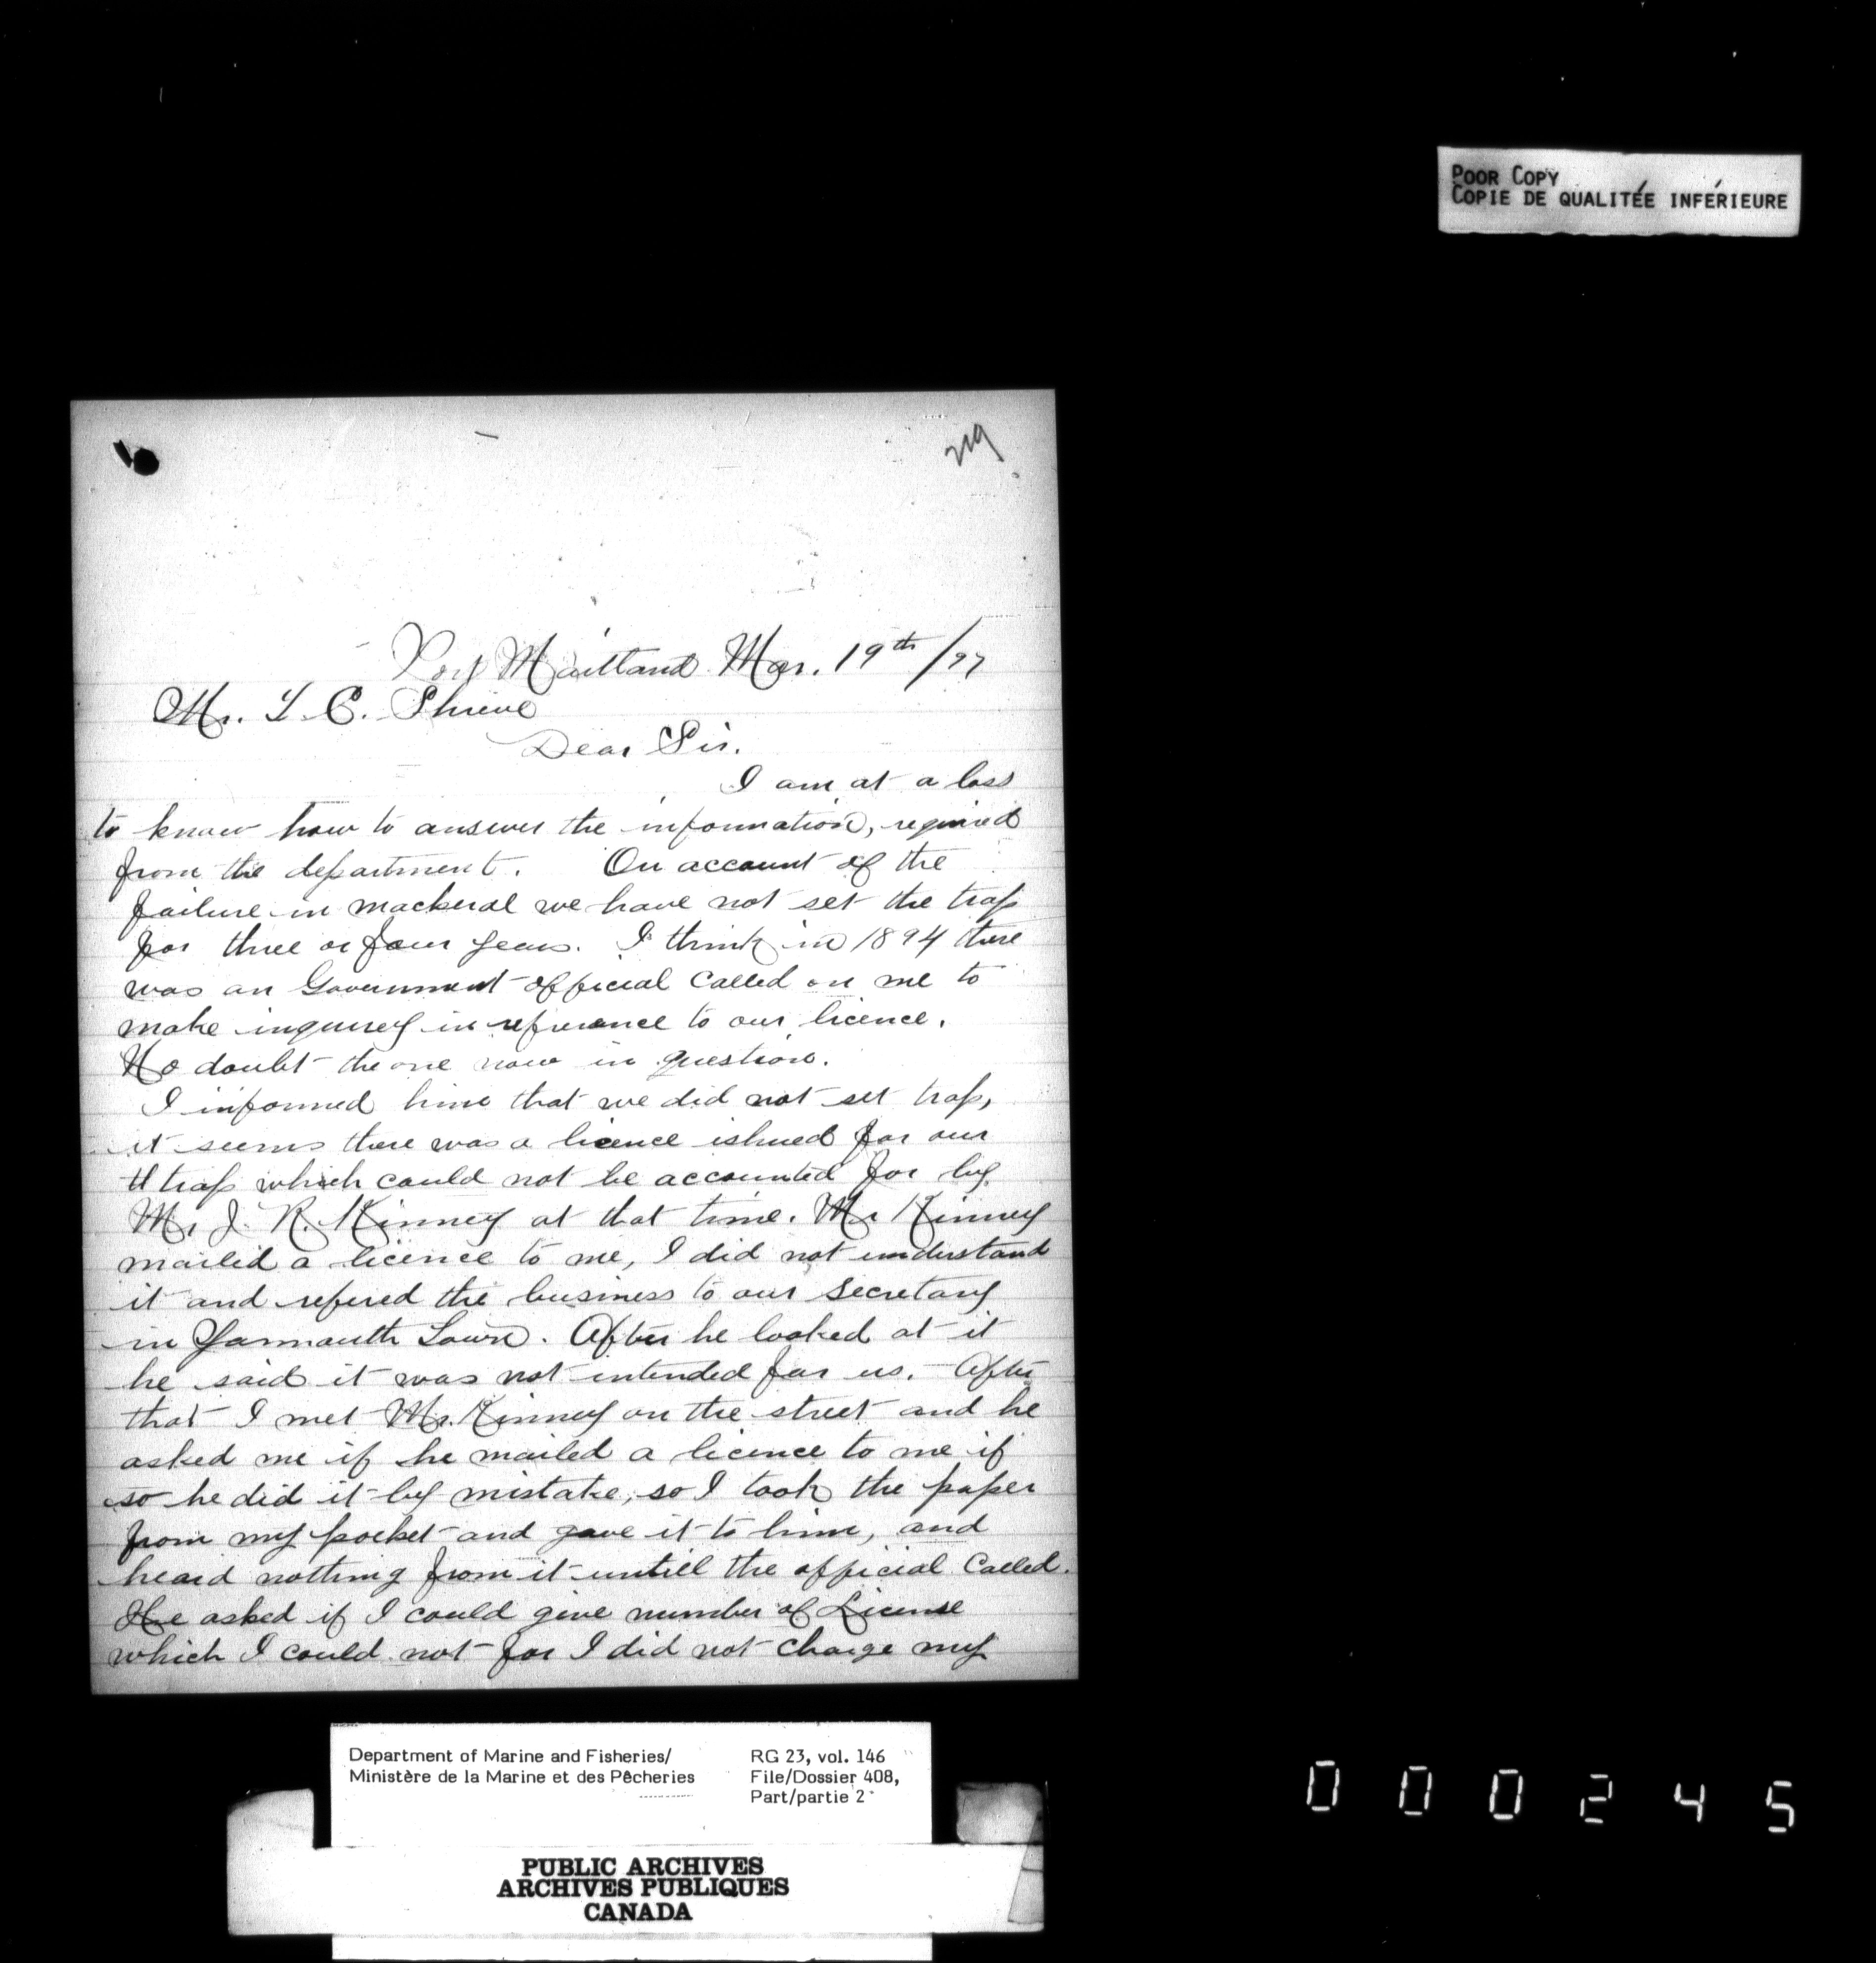 POOR COPY
COPIE DE QUALITÉE INFÉRIEURE
219
Port Maitland Mar. 19th /97
Mr. L. C. Shrieve
Dear Sir.
I am at a loss
to know how to answer the information, required
from the department. On account of the
failure in mackeral we have not set the trap
for three or four years. I think in 1894 there
was an Government official called on me to
make inquirey in refrence to our licence.
No doubt the one now in question.
I informed him that we did not set trap,
it seems there was a licence ishued for our
trap which could not be accounted for by
Mr J. R. Kinney at that time. Mr Kinney
mailed a licence to me, I did not understand
it and refered the business to our secretary
in Yarmouth Town. After he looked at it
he said it was not intended for us. After
that I met Mr. Kinney on the street and he
asked me if he mailed a licence to me if
so he did it by mistake, so I took the paper
from my pocket and gave it to him, and
heard nothing from it untill the official called.
He asked if I could give number of License
which I could not for I did not charge my
Department of Marine and Fisheries/
Ministère de la Marine et des Pêcheries
RG 23, vol. 146
File/Dossier 408,
Part/partie 2
PUBLIC ARCHIVES
ARCHIVES PUBLIQUES
CANADA
000245